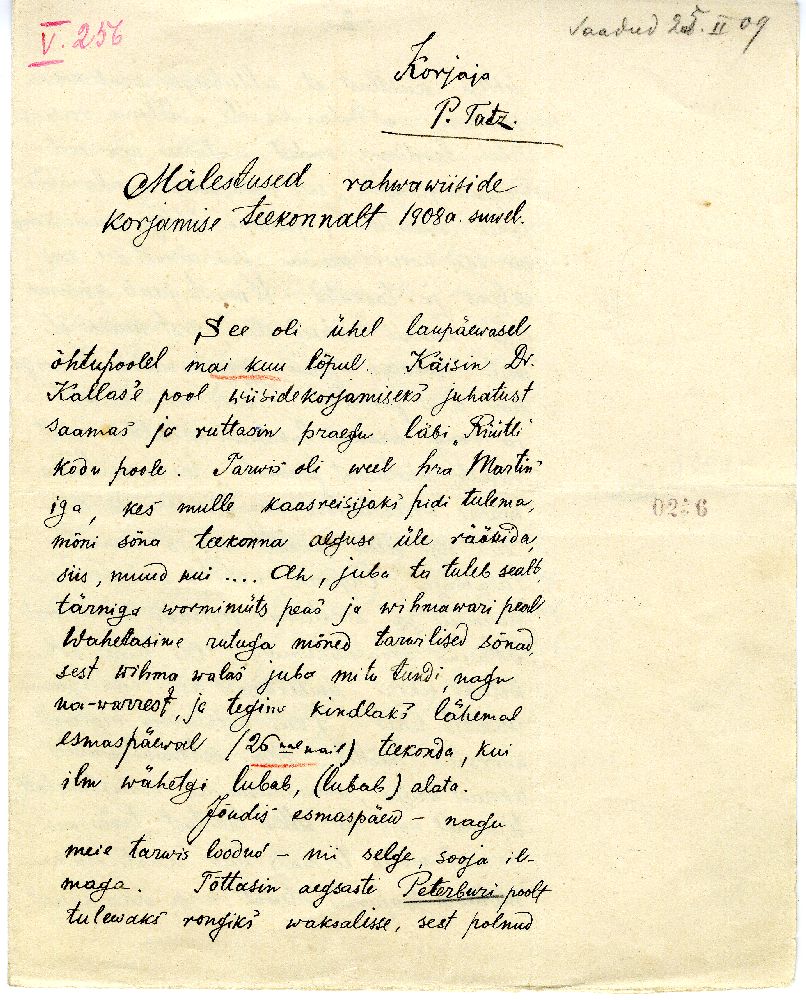 V. 256
Saadud 25. II 09
Korjaja
P. Tatz.
Mälestused rahwawiiside
korjamise teekonnalt 1908 a. suwel.
See oli ühel laupäewasel
õhtupoolel mai kuu lõpul. Käisin Dr.
Kallas'e pool wiisidekorjamiseks juhatust
saamas ja ruttasin praegu läbi Rüütli
kodu poole. Tarwis oli weel hra Martin
iga, kes mulle kaasreisijaks pidi tulema,
mõni sõna teekonna alguse üle rääkida,
siis, muud kui .... Ah, juba ta tuleb sealt,
tärniga wormimüts peas ja wihmawari peal
Wahetasime rutuga mõned tarwilised sõnad,
sest wihma walas juba mitu tundi, nagu
oa-warrest, ja tegime kindlaks lähemal
esmaspäewal (26 mail) teekonda, kui
ilm wähetgi lubab, (lubab) alata.
Jõudis esmaspäew – nagu
meie tarwis loodud – nii selge, sooja il-
maga. Tõttasin aegsaste Peterburi poolt
tulewaks rongiks waksalisse, sest polnud
0256